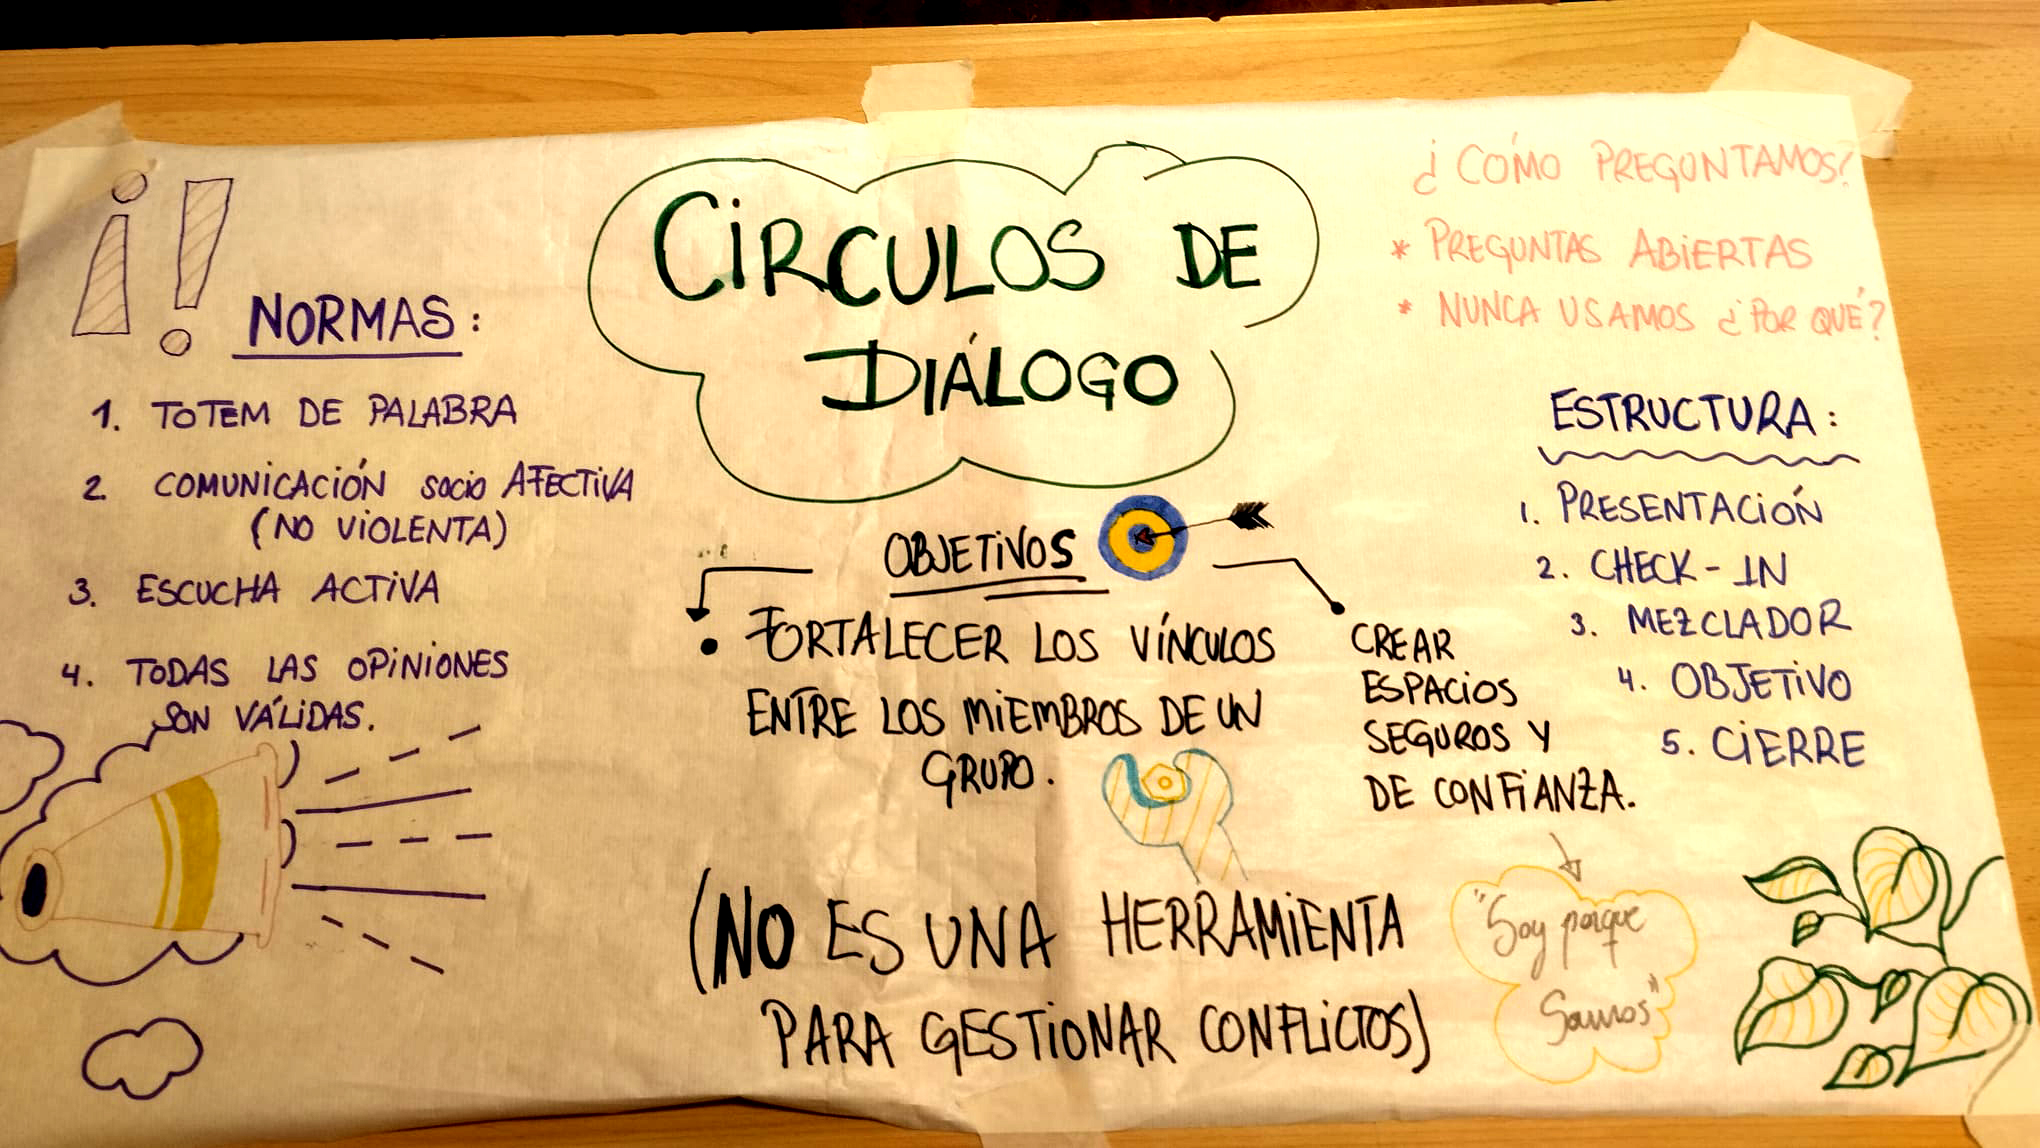 CÍRCULOS DE
DIÁLOGO
¡!
NORMAS:
1. TOTEM DE PALABRA
2. COMUNICACIÓN socio AFECTIVA
(NO VIOLENTA)
3. ESCUCHA ACTIVA
4. TODAS LAS OPINIONES
SON VÁLIDAS.
OBJETIVOS
• FORTALECER LOS VÍNCULOS
ENTRE LOS MIEMBROS DE UN
GRUPO.
CREAR
ESPACIOS
SEGUROS Y
DE CONFIANZA.
"Soy porque
Somos"
(NO ES UNA HERRAMIENTA
PARA GESTIONAR CONFLICTOS)
¿CÓMO PREGUNTAMOS?
* PREGUNTAS ABIERTAS
* NUNCA USAMOS ¿POR QUÉ?
ESTRUCTURA:
1. PRESENTACIÓN
2. CHECK-IN
3. MEZCLADOR
4. OBJETIVO
5. CIERRE